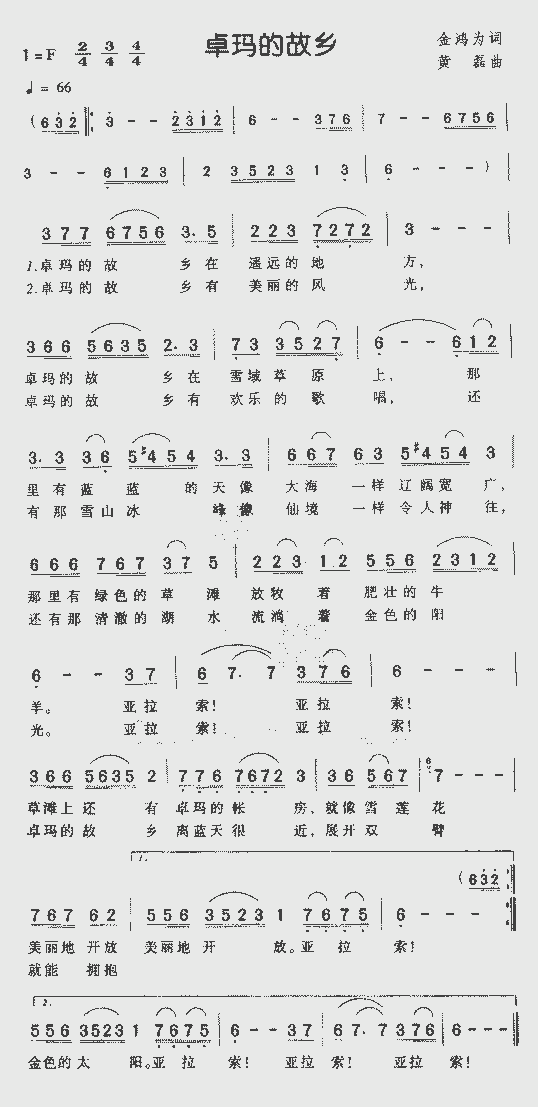 卓玛的故乡
1=F 2/4 3/4 4/4
金鸿为词
黄 磊曲
♩= 66
(6 3 2 ‖: 3 - - 2 3 1 2 | 6 - - 3 7 6 | 7 - - 6 7 5 6 |
3 - - 6 1 2 3 | 2 3 5 2 3 1 3 | 6 - - - ) |
3 7 7 6 7 5 6 3. 5 | 2 2 3 7 2 7 2 | 3 - - -
1.卓玛的 故 乡 在 遥远的 地 方,
2.卓玛的 故 乡 有 美丽的 风 光,
3 6 6 5 6 3 5 2. 3 | 7 3 3 5 2 7 | 6 - - 6 1 2
卓玛的 故 乡 在 雪域 草 原 上, 那
卓玛的 故 乡 有 欢乐 的 歌 唱, 还
3. 3 3 6 5 #4 5 4 3. 3 | 6 6 7 6 3 5 #4 5 4 3
里 有 蓝 蓝 的 天 像 大 海 一样 辽 阔 宽 广,
有 那 雪 山 冰 峰 像 仙 境 一样 令 人 神 往,
6 6 6 7 6 7 3 7 5 | 2 2 3 1 2 5 5 6 2 3 1 2
那里有 绿色的 草 滩 放牧 着 肥壮的 牛
还有那 清澈的 湖 水 流淌 着 金色的 阳
6 - - 3 7 | 6 7. 7 3 7 6 | 6 - - -
羊。 亚拉 索! 亚拉 索!
光。 亚拉 索! 亚拉 索!
3 6 6 5 6 3 5 2 | 7 7 6 7 6 7 2 3 | 3 6 5 6 7 | 6 7 - - -
草滩上 还 有 卓玛的 帐 房, 就像 雪 莲 花
卓玛的 故 乡 离蓝天 很 近, 展开 双 臂
1.
(6 3 2 :‖
7 6 7 6 2 | 5 5 6 3 5 2 3 1 7 6 7 5 | 6 - - -
美丽地 开放 美丽地 开 放。亚 拉 索!
就能 拥抱
2.
5 5 6 3 5 2 3 1 7 6 7 5 | 6 - - 3 7 | 6 7. 7 3 7 6 | 6 - - - ‖
金色的 太 阳。亚 拉 索! 亚拉 索! 亚拉 索!